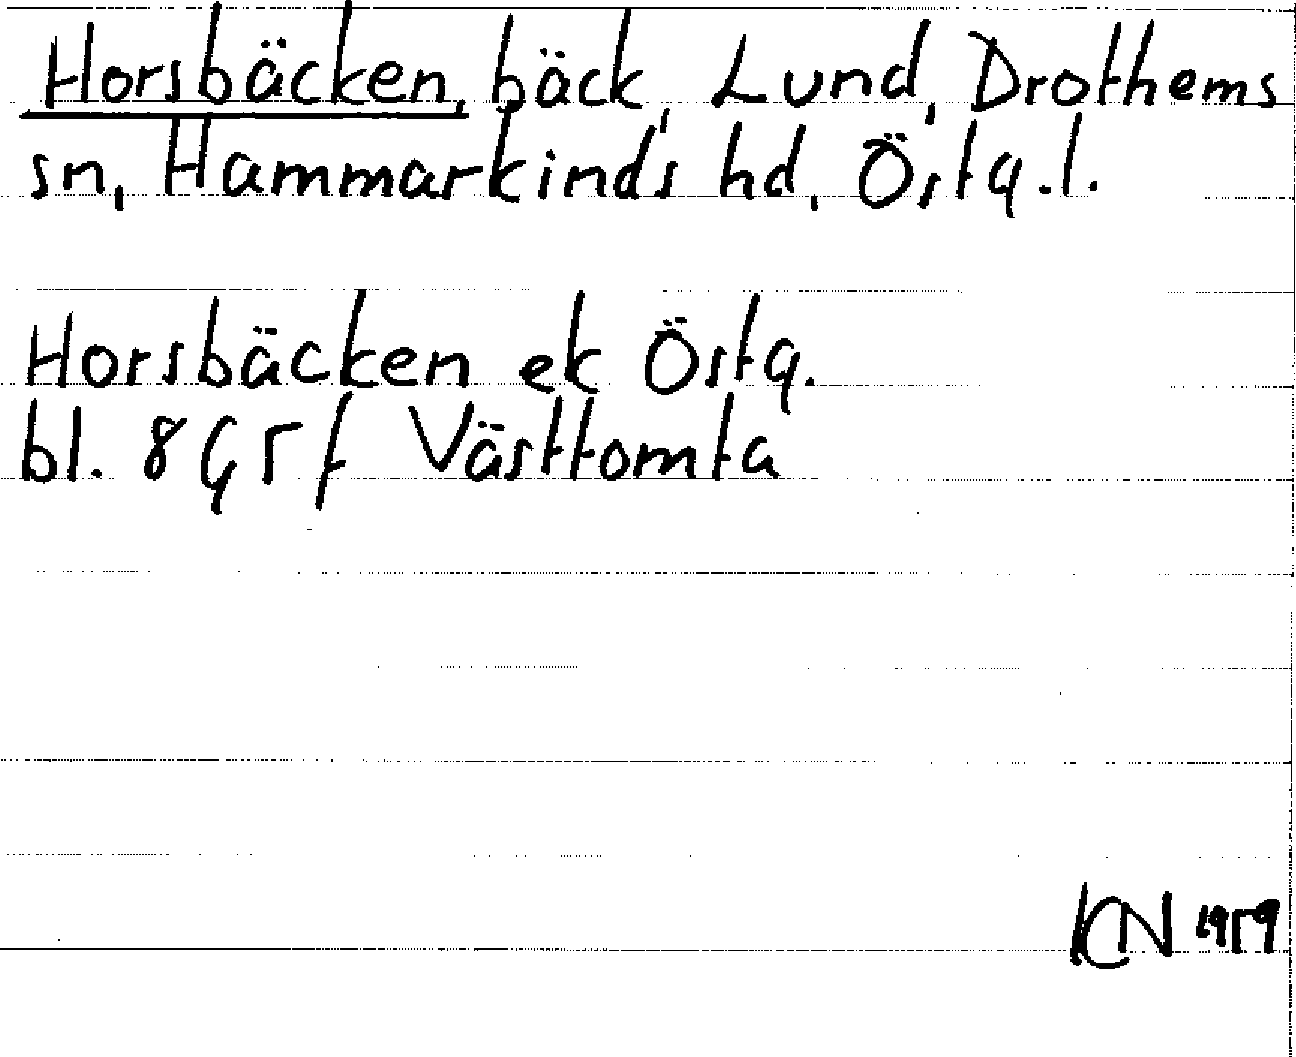 Horsbäcken, bäck, Lund, Drothems
sn, Hammarkinds hd, Östg.l.
Horsbäcken ek Östg.
bl. 8G5f Västtomta
KN 1959